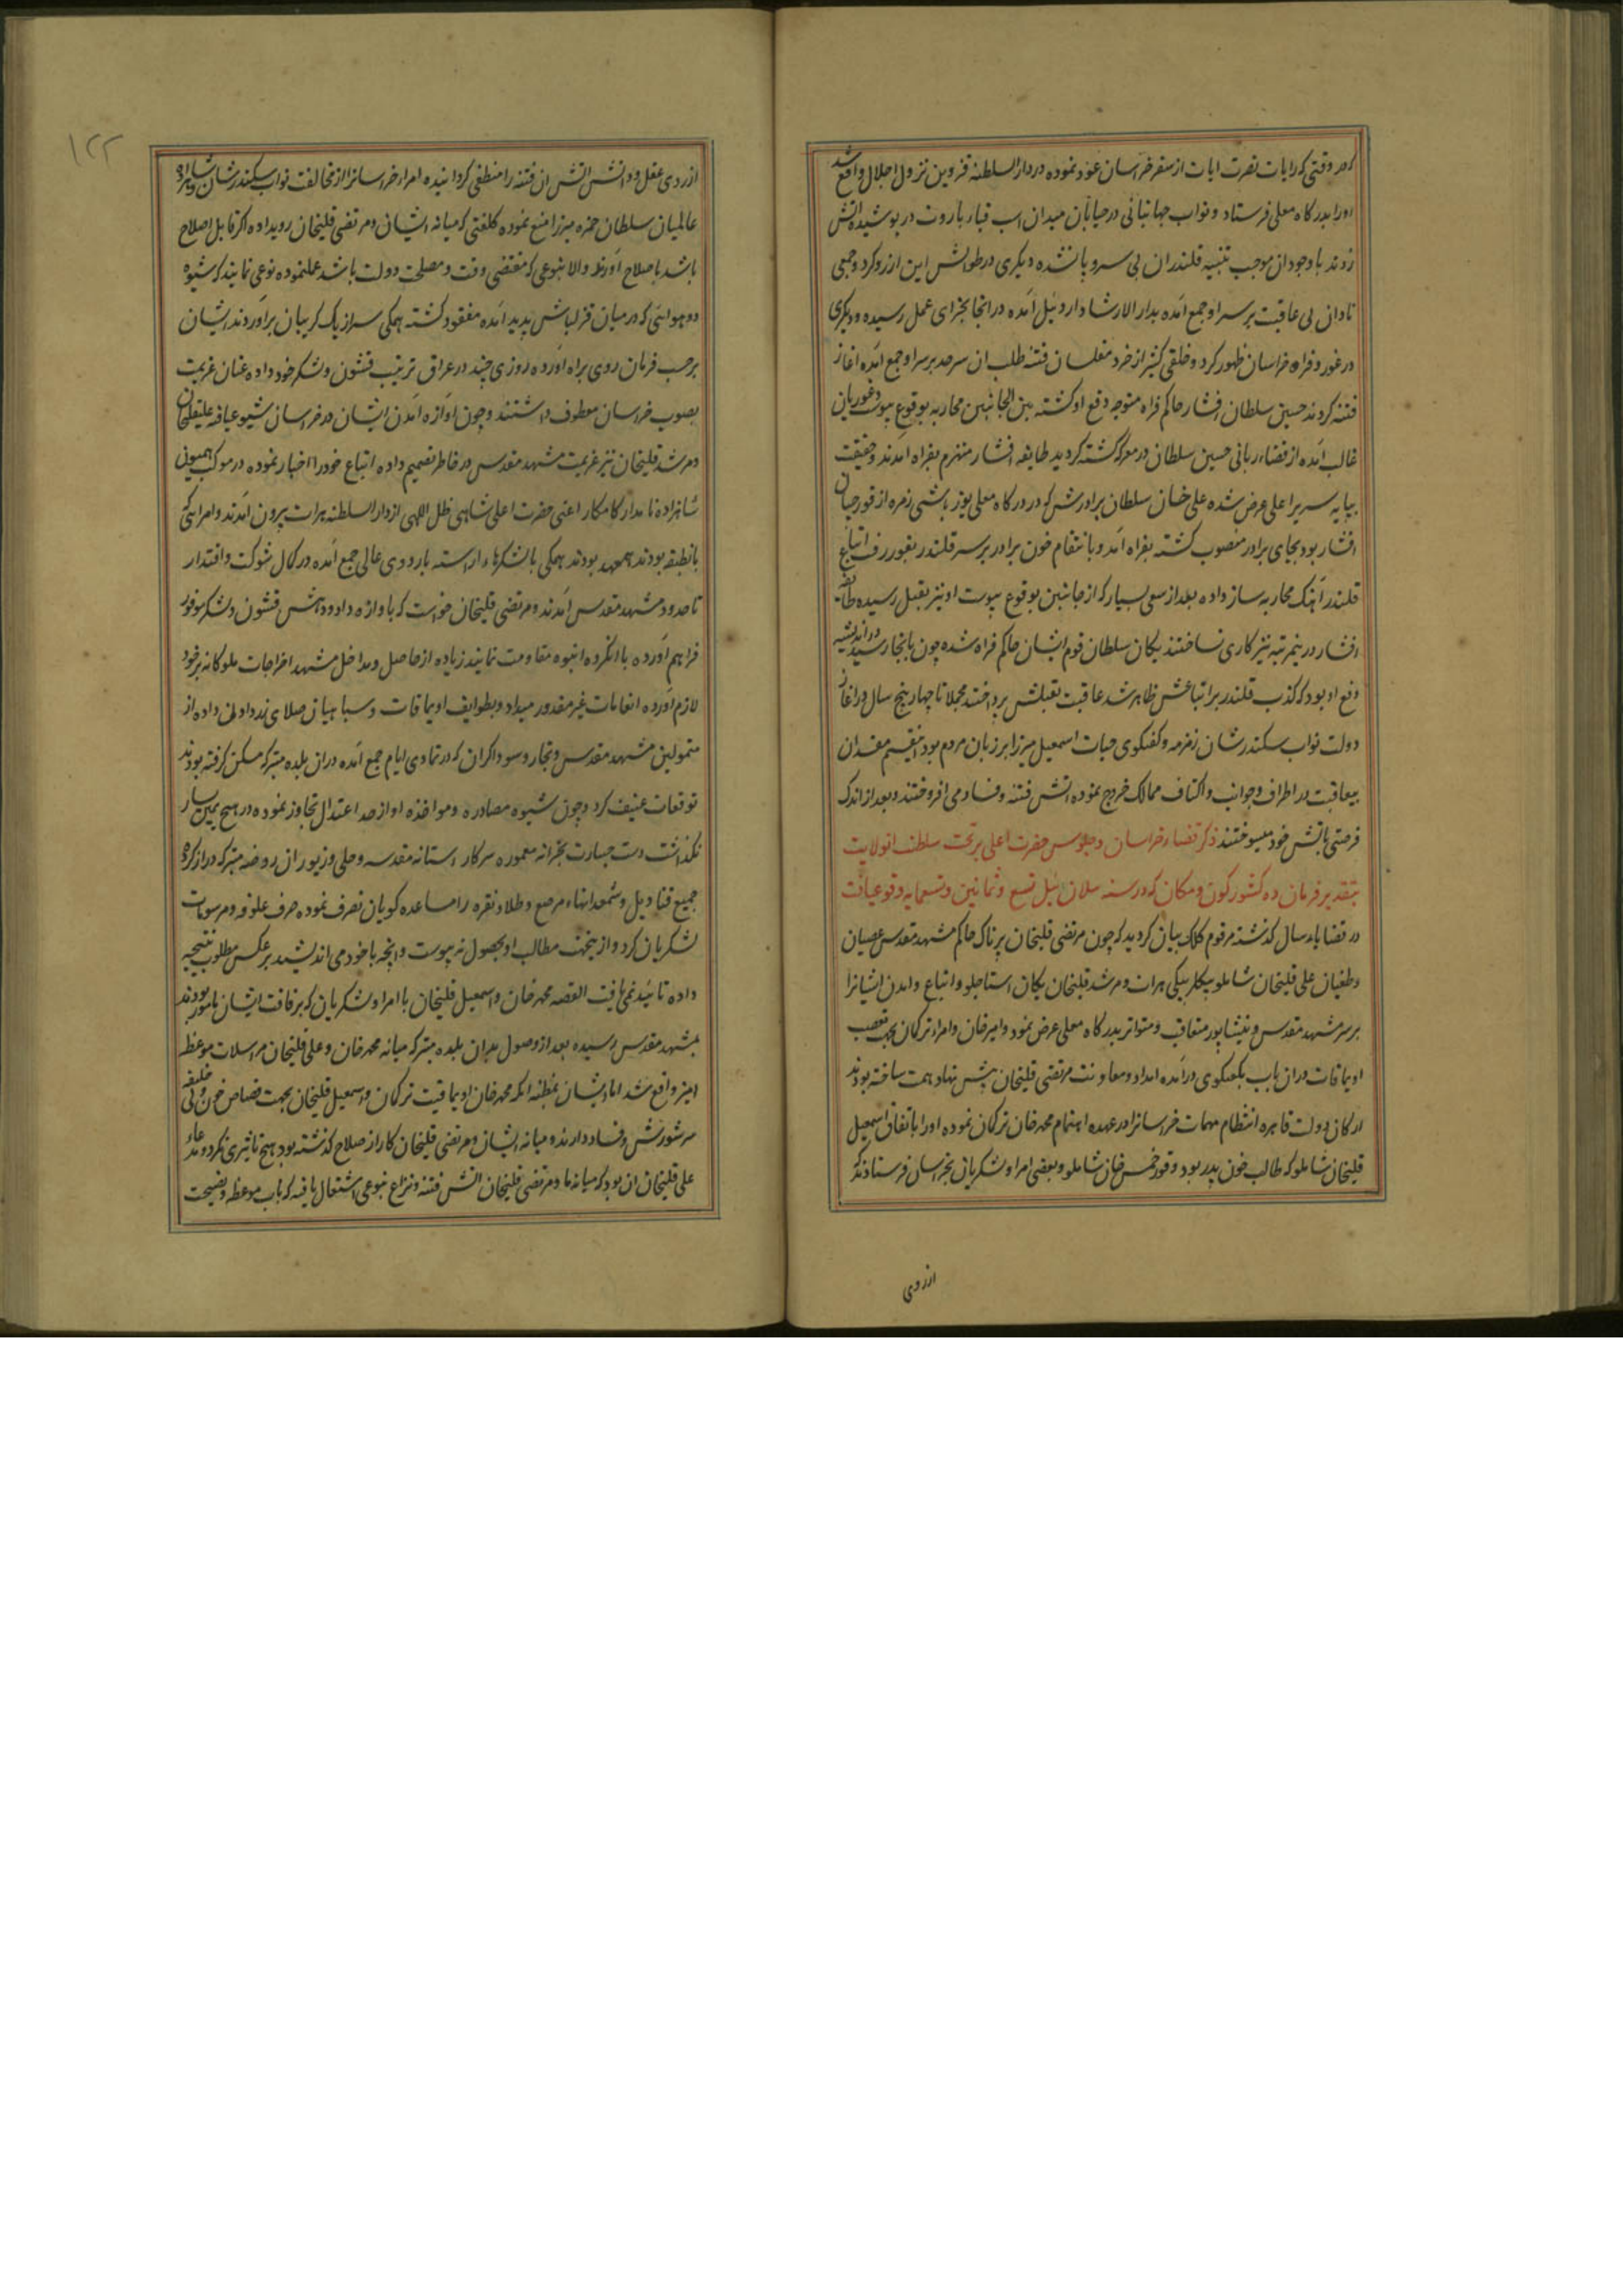 که در وقتی که رایات نصرت ایات از سفر خراسان عود نموده در دار السلطنه قزوین نزول اجلال واقع شد
اورا بدرکاه معلی فرستاد و نواب جهانبانی در خیابان میدان اسب قبار باروت در پوشیده اتش
زدند با وجود ان موجب تنبیه قلندران بی سر و پا نشده دیکری در طوالش این ارزو کرد و جمعی
نادان بی عاقبت بر سر او جمع امده بدار الارشاد اردبیل امده در انجا بجزای عمل رسیده و دیکری
در غور و فراه خراسان ظهور کرد و خلقی کثیر از خرد مفلسان فتنه طلب ان سرحد بر سر او جمع امده اغاز
فتنه کردند حسین سلطان افشار حاکم فراه متوجه دفع او کشته بین الجانبین محاربه بوقوع پیوست و غوریان
غالب امده از قضاء ربانی حسین سلطان در معرکه کشته کردید طایفه افشار منهزم بفراه امدند و حقیقت
بپایه سریر اعلی عرض شده علی خان سلطان برادرش که در درکاه معلی یوزباشی زمره از قورچیان
افشار بود بجای برادر منصوب کشته بفراه امد و بانتقام خون برادر بر سر قلندر بغور رفت اتباع
قلندر اهنک محاربه ساز داده بعد از سعی بسیار که از جانبین بوقوع پیوست او نیز بقتل رسیده طایفه
افشار درینمرتبه نیز کاری نساختند یکان سلطان قوم ایشان حاکم فراه شده چون بانجا رسید در اندیشه
دفع او بود که کذب قلندر بر اتباعش ظاهر شد عاقبت بقتلش پرداختند مجملا تا چهار پنج سال در اغاز
دولت نواب سکندر شان زمزمه و کفتکوی حیات اسمعیل میرزا بر زبان مردم بود اینقسم مفسدان
بیعاقبت در اطراف و جوانب و اکناف ممالک خروج نموده اتش فتنه و فساد می افروختند و بعد از اندک
فرصتی باتش خود میسوختند ذکر قضاء خراسان و جلوس حضرت اعلی بر تخت سلطنت انولایت
بتقدیر فرمان ده کشور کون و مکان که در سنه سلان ئیل تسع و ثمانین و تسعمایه وقوع یافت
در قضایاء سال کذشته مرقوم کلک بیان کردید که چون مرتضی قلیخان پرناک حاکم مشهد مقدس عصیان
و طغیان علی قلیخان شاملو بیکلربیکی هرات و مرشد قلیخان یکان استاجلو و اتباع و امدن ایشانرا
بر سر مشهد مقدس و نیشابور متعاقب و متواتر بدرکاه معلی عرض نمود و امیر خان و امراء ترکمان بجهت تعصب
اویماقات در ان باب بکفتکوی درامده امداد و معاونت مرتضی قلیخان پیش نهاد همت ساخته بودند
ارکان دولت قاهره انتظام مهمات خراسانرا در عهده اهتمام محمد خان ترکمان نموده اورا باتفاق اسمعیل
قلیخان شاملو که طالب خون پدر بود و قورخمس خان شاملو و بعضی امرا و لشکریان بخراسان فرستادند که
از روی
۱۲۲
از روی عقل و دانش اتش ان فتنه را منطفی کردانیده امراء خراسانرا از مخالفت نواب سکندر شان و شاهزاده
عالمیان سلطان حمزه میرزا منع نموده کلفتی که میانه ایشان و مرتضی قلیخان رویداده اکر قابل اصلاح
باشد باصلاح اورند والا بنوعی که مقتضی وقت و مصلحت دولت باشد عملنموده نوعی نمایند که شیوه
دو هوائی که در میان قزلباش پدید امده مفقود کشته همکی سر از یک کریبان براوردند ایشان
بر حسب فرمان روی براه اورده روزی چند در عراق ترتیب قشون و لشکر خود داده عنان عزیمت
بصوب خراسان معطوف داشتند و چون اوازه امدن ایشان در خراسان شیوع یافت علیقلیخان
و مرشد قلیخان نیز عزیمت مشهد مقدس در خاطر تصمیم داده اتباع خود را اخبار نموده در موکب همیون
شاهزاده نامدار کامکار اعنی حضرت اعلی شاهی ظل اللهی از دار السلطنه هرات بیرون امدند و امرائی که
بانطبقه بودند همعهد بودند همکی با لشکرهاء اراسته باردوی عالی جمع امده در کمال شوکت و اقتدار
تا حدود مشهد مقدس امدند و مرتضی قلیخان خواست که باوازه داد و دهش قشون و لشکر موفور
فراهم اورده با انکروه انبوه مقاومت نماید زیاده از حاصل و مداخل مشهد اخراجات ملوکانه بر خود
لازم اورده انعامات غیر مقدور میداد و بطوایف اویماقات و سپاهیان صلای زر دادن داده از
متمولین مشهد مقدس و تجار و سوداکران که در تمادی ایام جمع امده در ان بلده متبرکه مسکن کرفته بودند
توقعات عنیف کرد و چون شیوه مصادره و مواخذه او از حد اعتدال تجاوز نموده در هیچ یمین یسار
نکذاشت دست جسارت بخزانه معموره سرکار استانه مقدسه و حلی و زیور ان روضه متبرکه دراز کرده
جمیع قنادیل و شمعدانهاء مرصع و طلا و نقره را مساعده کویان تصرف نموده صرف علوفه و مرسومات
لشکریان کرد و از ینجهت مطالب او بحصول نه پیوست و انچه با خود می اندیشید بر عکس مطلوب نتیجه
داده تائید نمی یافت القصه محمد خان و اسمعیل قلیخان با امرا و لشکریان که برفاقت ایشان مامور بودند
بمشهد مقدس رسیده بعد از وصول بدان بلده متبرکه میانه محمد خان و علی قلیخان مراسلات موعظه
امیز واقع شد اما ایشان بمظنه انکه محمد خان اویماقیت ترکمان و اسمعیل قلیخان بجهت قصاص خون ولی خلیفه
سر شورش و فساد دارند و میانه ایشان و مرتضی قلیخان کار از صلاح کذشته بود هیچ تاثیری نکرد و مدعاء
علی قلیخان ان بود که میانه ما و مرتضی قلیخان اتش فتنه و نزاع بنوعی اشتعال یافته که باب موعظه و نصیحت